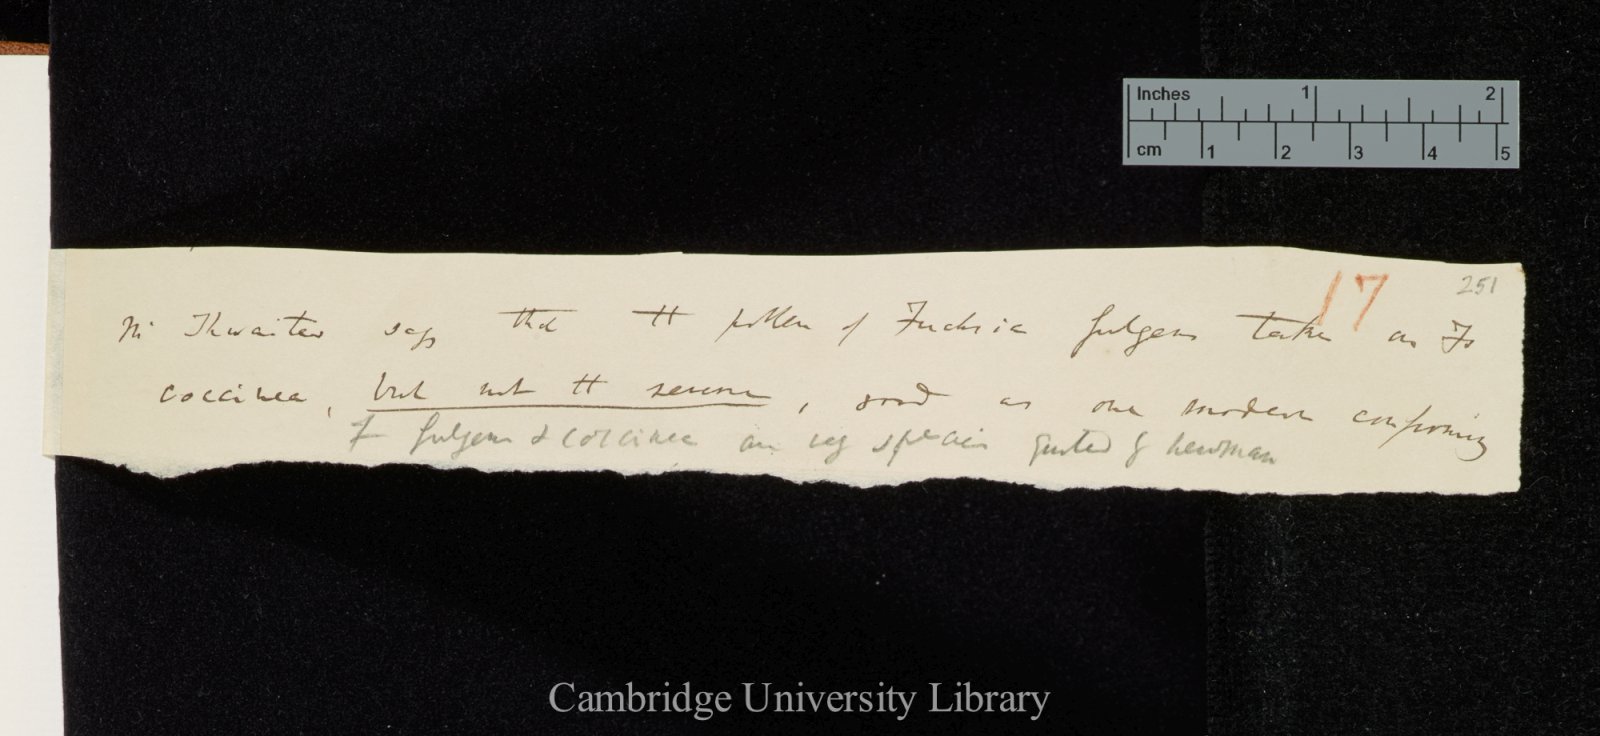 17
251
Mr Thwaites says that the pollen of Fuchsia fulgens takes on Fs
coccinea, but not the reverse, good as one modern confirming
F fulgens & coccinea are species quoted by Newman
Inches 1 2
cm 1 2 3 4 5
Cambridge University Library